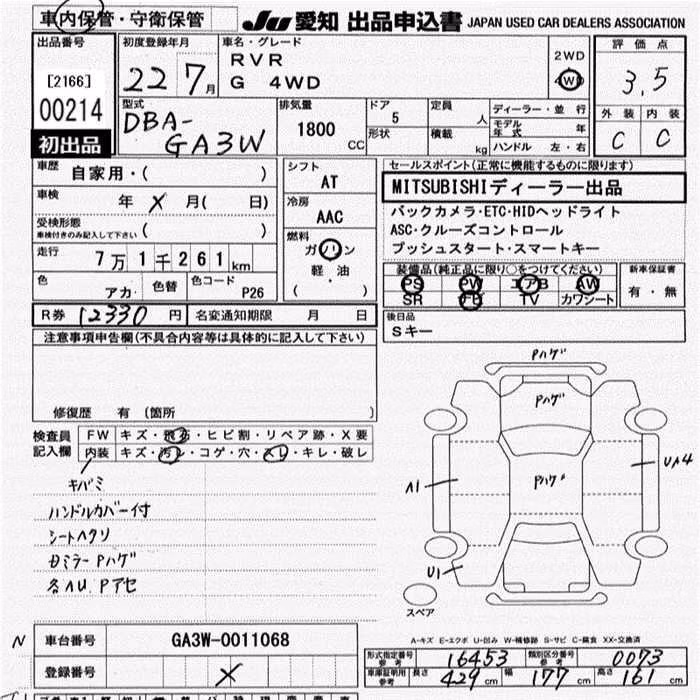 車内保管・守衛保管
JU 愛知 出品申込書 JAPAN USED CAR DEALERS ASSOCIATION
出品番号
[2166]
00214
初出品
初度登録年月
22 7月
車名・グレード
RVR
G 4WD
2WD
4WD
評価点
3.5
外装 内装
C C
型式
DBA-
GA3W
排気量
1800 CC
ドア
5
形状
定員
人
積載
kg
ディーラー・並行
モデル年式 年
ハンドル 左・右
車歴
自家用・( )
車検
年 X 月( 日)
受検形態
車検付きのみ記入して下さい ( )
走行
7万1千261km
色
アカ
色替
色コード
P26
シフト
AT
冷房
AAC
燃料
ガソリン
軽・油
( )
セールスポイント(正常に機能するものに限ります)
MITSUBISHIディーラー出品
バックカメラ・ETC・HIDヘッドライト
ASC・クルーズコントロール
プッシュスタート・スマートキー
装備品(純正品に限り○をつけてください)
PS PW エアB AW
SR TV カワシート
新車保証書
有・無
R券 12330 円 名変通知期限 月 日
後日品
Sキー
注意事項申告欄(不具合内容等は具体的に記入して下さい)
修復歴 有 (箇所 )
検査員
記入欄
FW キズ・飛石・ヒビ割・リペア跡・X要
内装 キズ・汚レ・コゲ・穴・スレ・キレ・破レ
キバミ
ハンドルカバー付
シートヘタリ
Pハゲ
Pハゲ
Pハゲ
A1
UA4
U1
スペア
A-キズ E-エクボ U-凹み W-補修跡 S-サビ C-腐食 XX-交換済
N
車台番号
GA3W-0011068
登録番号
X
形式指定番号
参考
16453
類別区分番号
参考
0073
車庫証明用
参考
長さ 429 cm 幅 177 cm 高さ 161 cm